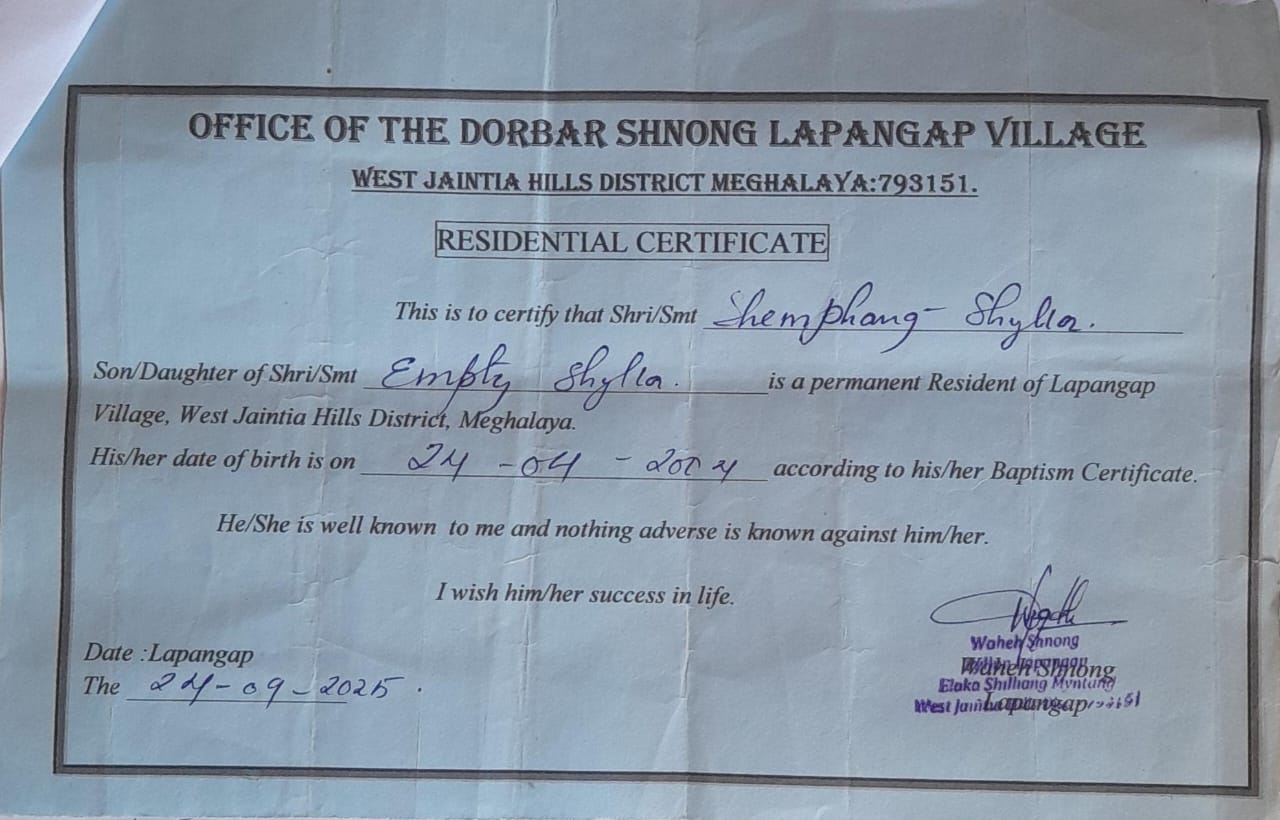 OFFICE OF THE DORBAR SHNONG LAPANGAP VILLAGE
WEST JAINTIA HILLS DISTRICT MEGHALAYA:793151.
RESIDENTIAL CERTIFICATE
This is to certify that Shri/Smt Shemphang Shylla.
Son/Daughter of Shri/Smt Empty Shylla. is a permanent Resident of Lapangap
Village, West Jaintia Hills District, Meghalaya.
His/her date of birth is on 24-04-2004 according to his/her Baptism Certificate.
He/She is well known to me and nothing adverse is known against him/her.
I wish him/her success in life.
Date :Lapangap
The 24-09-2025.
Waheh Shnong
Waheh Shnong
Elaka Shilliang Myntang
Lapangap
West